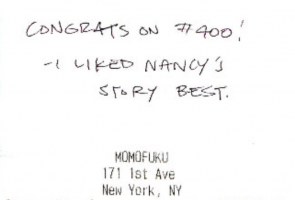 CONGRATS ON #400!
-I LIKED NANCY'S
STORY BEST.
MOMOFUKU
171 1st Ave
New York, NY